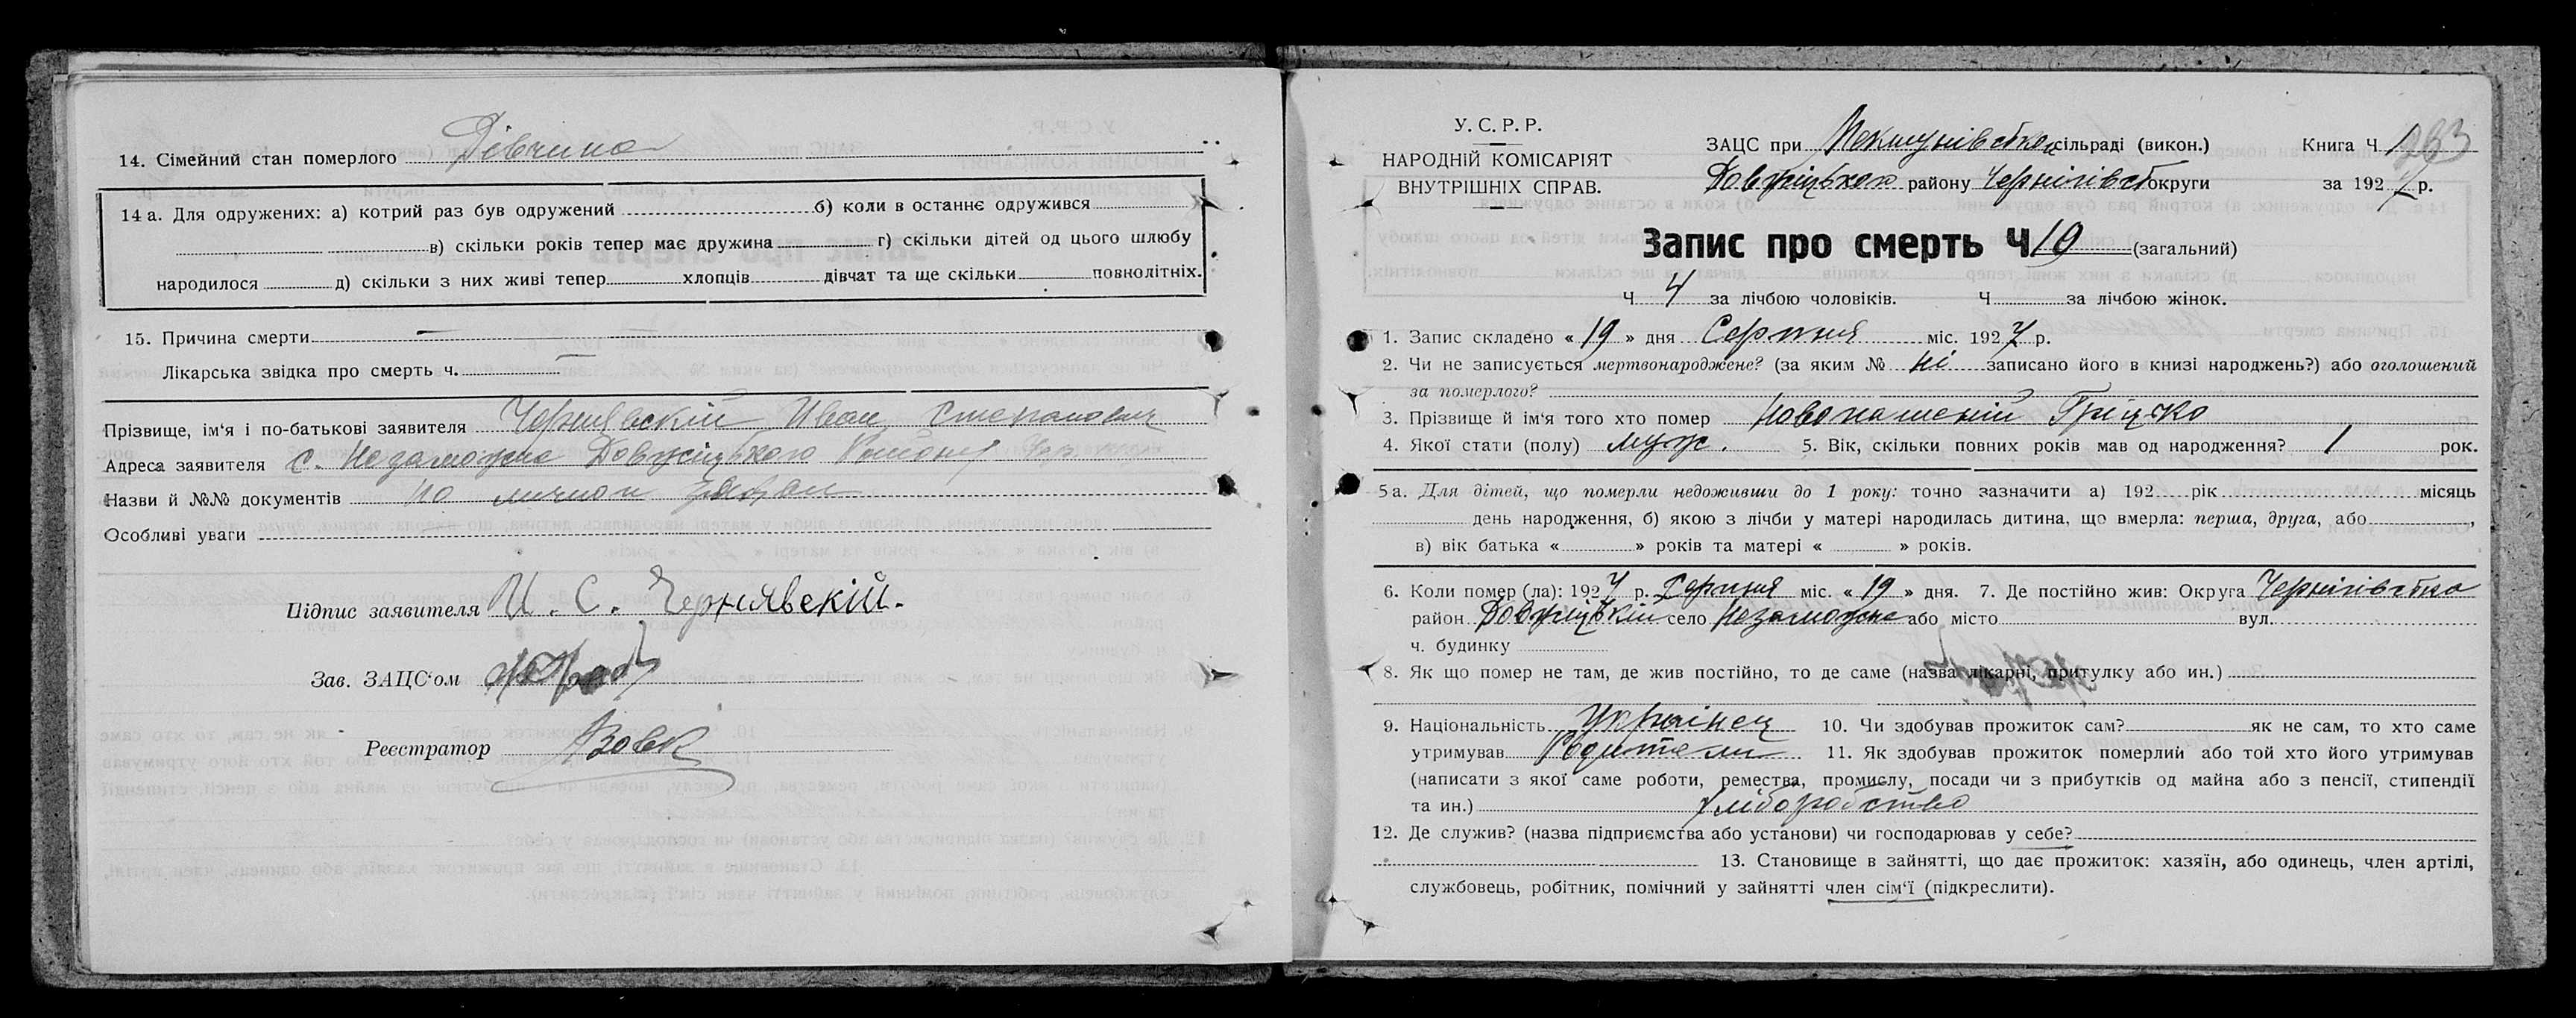 14. Сімейний стан померлого Дівчина
14 а. Для одружених: а) котрий раз був одружений б) коли в останнє одружився
в) скільки років тепер має дружина г) скільки дітей од цього шлюбу
народилося д) скільки з них живі тепер хлопців дівчат та ще скільки повнолітніх.
15. Причина смерти —
Лікарська звідка про смерть ч. —
Прізвище, ім'я і по-батькові заявителя Чернявскій Иван Степанович
Адреса заявителя с. Незаможне Довжицького Району
Назви й №№ документів по личной
Особливі уваги
Підпис заявителя И. С. Чернявскій.
Зав. ЗАЦС'ом
Реєстратор Вовк
У. С. Р. Р.
НАРОДНІЙ КОМІСАРІЯТ
ВНУТРІШНІХ СПРАВ.
ЗАЦС при сільраді (викон.) Книга Ч 1
283
Довжицького району Чернігівськ округи за 1927 р.
Запис про смерть Ч 19 (загальний)
Ч 4 за лічбою чоловіків. Ч за лічбою жінок.
1. Запис складено « 19 » дня Серпня міс. 1927 р.
2. Чи не записується мертвонароджене? (за яким № ні записано його в книзі народжень?) або оголошений
за померлого?
3. Прізвище й ім'я того хто помер Новопашеній Гріцько
4. Якої стати (полу) муж. 5. Вік, скільки повних років мав од народження? 1 рок.
5 а. Для дітей, що померли недоживши до 1 року: точно зазначити а) 192 рік місяць
день народження, б) якою з лічби у матері народилась дитина, що вмерла: перша, друга, або ,
в) вік батька « » років та матері « » років.
6. Коли помер (ла): 1927 р. Серпня міс. « 19 » дня. 7. Де постійно жив: Округа Чернігівська
район Довжицькій село Незаможне або місто вул.
ч. будинку
8. Як що помер не там, де жив постійно, то де саме (назва лікарні, притулку або ин.)
9. Національність Українец 10. Чи здобував прожиток сам? як не сам, то хто саме
утримував Родители 11. Як здобував прожиток померлий або той хто його утримував
(написати з якої саме роботи, ремества, промислу, посади чи з прибутків од майна або з пенсії, стипендії
та ин.) Хліборобство
12. Де служив? (назва підприємства або установи) чи господарював у себе?
13. Становище в зайнятті, що дає прожиток: хазяїн, або одинець, член артілі,
службовець, робітник, помічний у зайнятті член сім'ї (підкреслити).